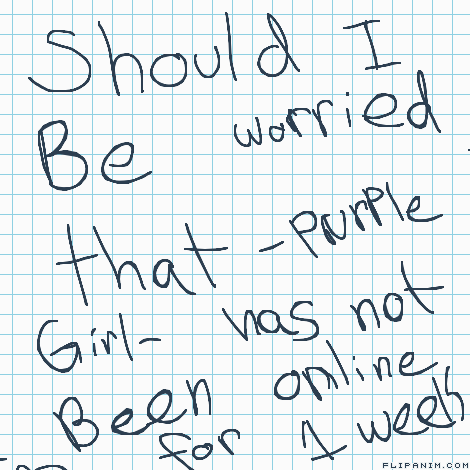 Should I
Be worried
that -PurPle
Girl- has not
Been online
for 1 week
FLIPANIM.COM